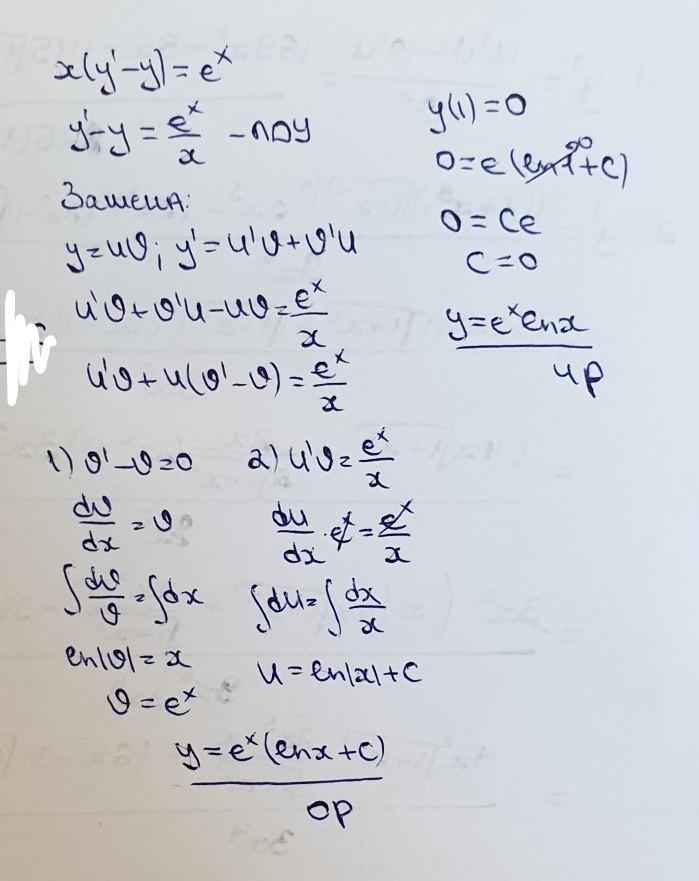 x(y'-y)=e^x
y'-y = e^x/x - ЛДУ
Замена:
y=uv; y'=u'v+v'u
u'v+v'u-uv=e^x/x
u'v+u(v'-v)=e^x/x
1) v'-v=0
dv/dx = v
∫dv/v=∫dx
ln|v|=x
v=e^x
2) u'v=e^x/x
du/dx·e^x=e^x/x
∫du=∫dx/x
u=ln|x|+C
y=e^x(lnx+C)
ОР
y(1)=0
0=e(ln1+C)
0
0=Ce
C=0
y=e^x lnx
ЧР